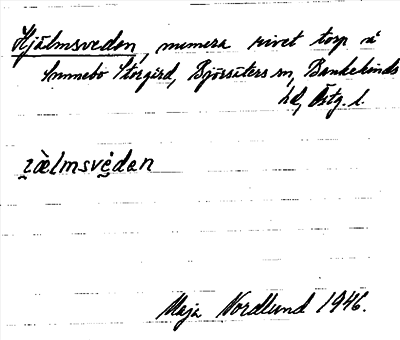 Hjälmsvedan, numera rivet torp å
Smnebo Storgård, Björsäters sn, Bankekinds
hd, Östg. l.
iälmsvedan
Maja Nordlund 1946.